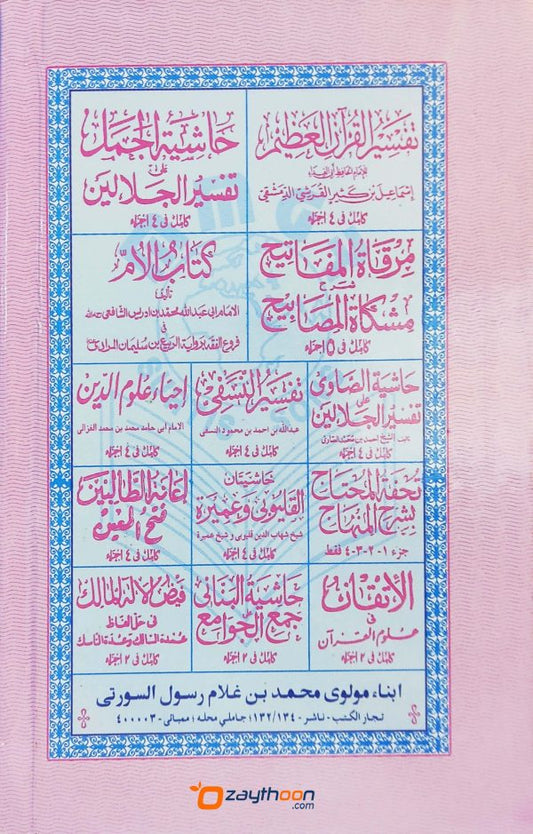 تفسير القرآن العظيم
للإمام الحافظ أبي الفداء
إسماعيل بن كثير القرشي الدمشقي
كامل في ٤ اجزاء
حاشية الجمل
على
تفسير الجلالين
كامل في ٤ اجزاء
مرقاة المفاتيح
شرح
مشكاة المصابيح
كامل في ٥ اجزاء
كتاب الأم
تأليف
الامام ابي عبد الله محمد بن ادريس الشافعي
في
فروع الفقه برواية الربيع بن سليمان المرادي
حاشية الصاوى
على
تفسير الجلالين
الشيخ احمد بن محمد الصاوى
كامل في ٤ اجزاء
تفسير النسفي
عبدالله بن احمد بن محمود النسفى
كامل في ٤ اجزاء
إحياء علوم الدين
الامام أبى حامد محمد بن محمد الغزالى
كامل في ٤ اجزاء
تحفة المحتاج
بشرح المنهاج
جزء ١-٢-٣-٤ فقط
حاشيتان
القليوبي وعميرة
شيخ شهاب الدين قليوبى و شيخ عميرة
كامل في ٤ اجزاء
إعانة الطالبين
فتح المعين
كامل في ٤ اجزاء
الإتقان
في
علوم القرآن
كامل في ٢ اجزاء
حاشية البناني
على
جمع الجوامع
كامل في ٢ اجزاء
فيض الإله المالك
في حل الفاظ
عمدة السالك وعدة الناسك
كامل في ٢ اجزاء
ابناء مولوى محمد بن غلام رسول السورتى
تجار الكتب - ناشر - ١٣٢/١٣٤؛ جاملي محله؛ ممبائى - ٤٠٠٠٠٣
zaythoon
.com